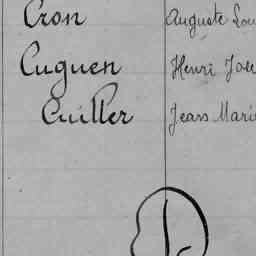 Cron Auguste Lou
Cuguen Henri Jose
Cuiller Jean Marie